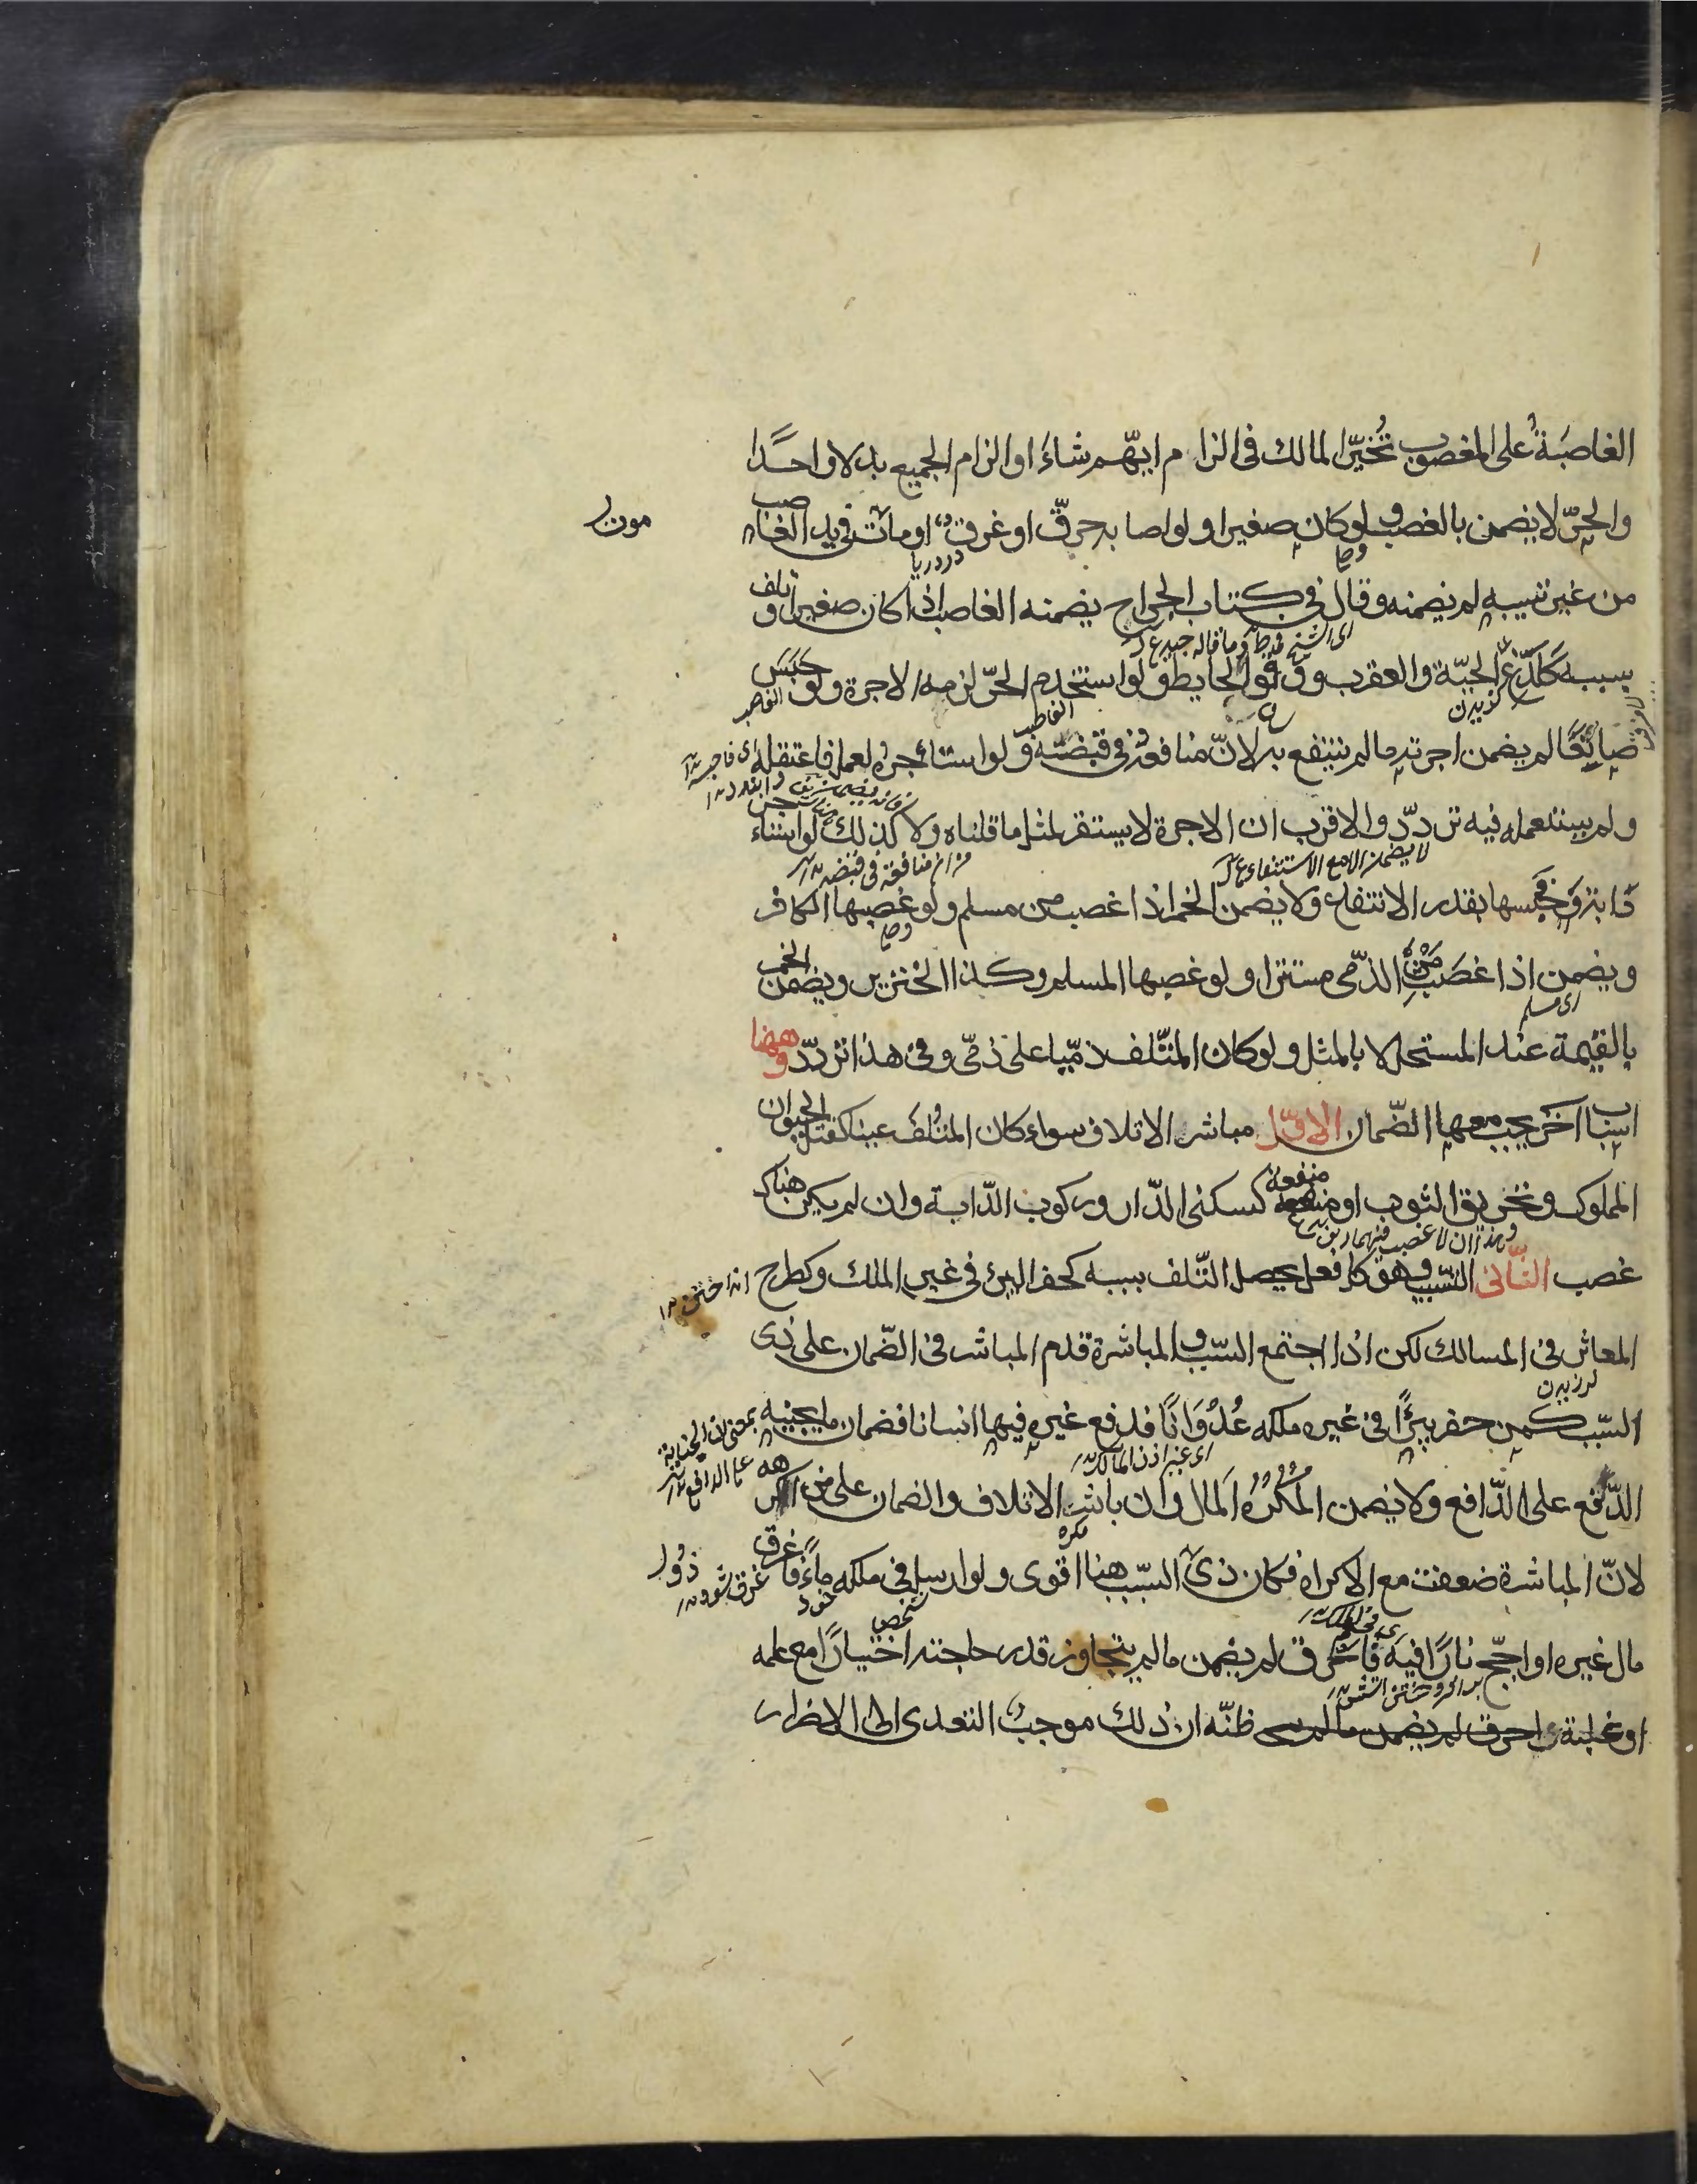 الغاصبَةُ على المغصوب تُخيّر المالك فى الزام ايّهم شاءَ او الزام الجميع بدلا واحدًا
والحرّ لا يضمن بالغصب ولو كان صغيرا ولو اصابه حرقٌ او غرقٌ او مات فى يد الغاصب
در دريا
من غير تسبيبه لم يضمنه وقال فى كتاب الجراح يضمنه الغاصب اذا كان صغيرا وتلف
بسببه كَلدغ الحيّة والعقرب ووقوع الحايط ولو استخدم الحرّ لزمه الاجرة ولو حَبَسَ
كزيدن
صانِعًا لم يضمن اجرته ما لم ينتفع به لانّ منافعه فى قبضته ولو استأجره لعمل فاعتقله
ولم يستعمله فيه تردّد والاقرب ان الاجرة لا يستقر لمثل ما قلناه ولا كذلك لو استاجر
دابة فحبسها بقدر الانتفاع ولا يضمن الخمر اذا غصب من مسلم ولو غصبها الكافر
ويضمن اذا غصَبَ مِن الذّمى مستترا ولو غصبها المسلم وكذا الخنزير ويضمن الخمر
اى مسلم
بالقيمة عند المستحل لا بالمثل ولو كان المتلف ذمّيا على ذمّى وفى هذا تردّد وههنا
اسباب اخَر يجب معها الضّمان الاوّل مباشر الاتلاف سواء كان المتلَف عينا كقتل الحيوان
المملوك وتخريق الثوب او منفعة كسكنى الدّار وركوب الدّابة وان لم يكن هناك
غصب الثّانى التسبيب وهو كل فعل يحصل التّلف بسببه كحفر البئر فى غير الملك وكطرح
المعاثر فى المسالك لكن اذا اجتمع السّبب والمباشرة قدم المباشر فى الضّمان على ذى
لرزيدن
السّبب كمن حفر بئرًا فى غير ملكه عُدْوَانًا فدفع غيره فيها انسانا فضمان ما يجنيه
اى غير اذن المالك
الدّفع على الدّافع ولا يضمن المُكرَهُ المال وان باشر الاتلاف والضمان على من اكرهه
لانّ المباشرة ضعفت مع الاكراه فكان ذى السّبب هنا اقوى ولو ارسل فى ملكه ماءً فاغرق
مال غيره او اجّج نارًا فيه فاحرق لم يضمن ما لم يتجاوز قدر حاجته اختيارًا مع علمه
او غلبة ظنّه ان ذلك موجبُ التعدى الى الاضرار